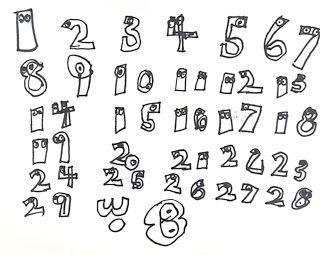 1 2 3 4 5 6 7
8 9 10 11 12 13
14 15 16 17 18
19 20 21 22 23
24 25 26 27 28
29 30 8